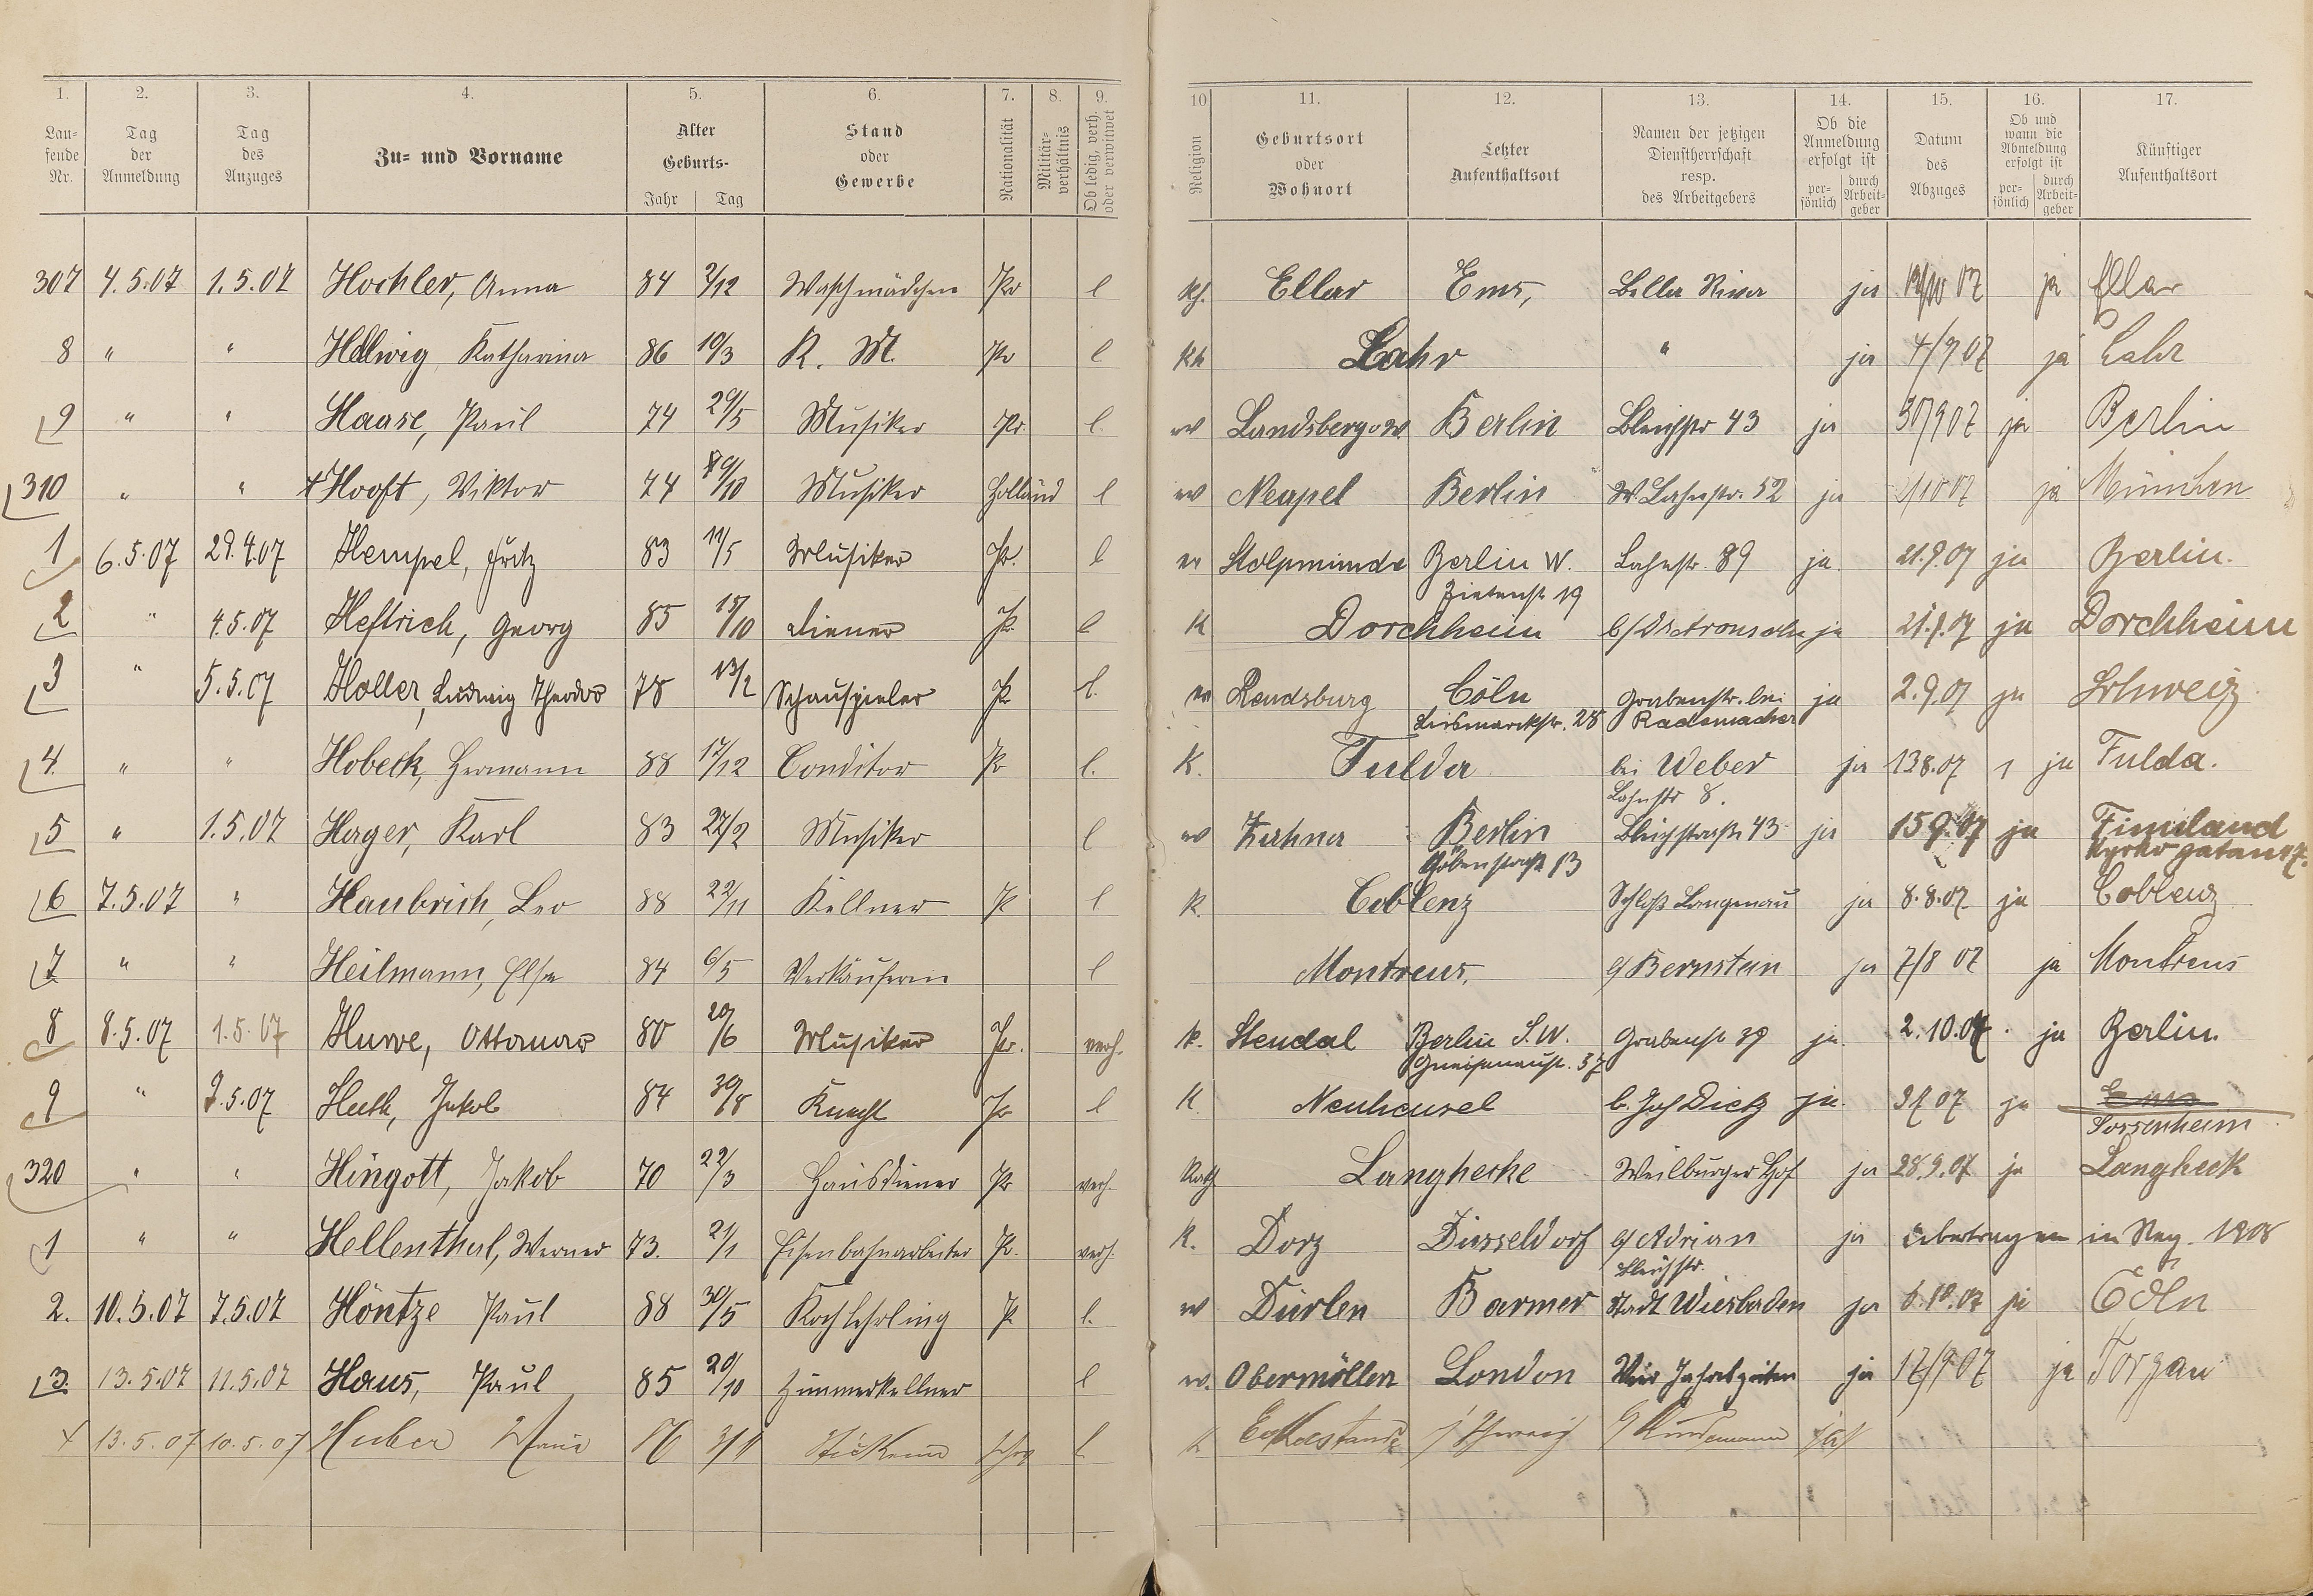 1. 2. 3. 4. 5. 6. 7. 8. 9. 10 11. 12. 13. 14. 15. 16. 17.
Lau-
fende
Nr.
Tag
der
Anmeldung
Tag
des
Anzuges
Zu- und Vorname
Alter
Geburts-
Jahr Tag
Stand
oder
Gewerbe
Nationalität
Militär-
verhältnis
Ob ledig, verh.
oder verwitwet
Religion
Geburtsort
oder
Wohnort
Letzter
Aufenthaltsort
Namen der jetzigen
Dienstherrschaft
resp.
des Arbeitgebers
Ob die
Anmeldung
erfolgt ist
per-
sönlich
durch
Arbeit-
geber
Datum
des
Abzuges
Ob und
wann die
Abmeldung
erfolgt ist
per-
sönlich
durch
Arbeit-
geber
Künftiger
Aufenthaltsort
307 4.5.07 1.5.07 Hochler, Anna 84 2/12 Waschmädchen Pr l Kh. Ellar Ems, Bella Riva ja 07 ja Ellar
8 " " Hellwig Katharina 86 10/3 K. M. Pr l Kh Lahr " ja 4/9 07 ja Lahr
9 " " Haase, Paul 74 29/5 Musiker Pr. l. ev Landsberg a. W. Berlin Bleichstr 43 ja 30/9 07 ja Berlin
310 " " Hooft, Viktor 74 Musiker Holland l ev Neapel Berlin W. Lahnstr. 52 ja 1/10 07 ja München
1 6.5.07 29.4.07 Hempel, Fritz 83 11/5 Musiker Pr. l ev Stolpmünde Berlin W. Lahnstr. 89 ja. 21.9.07 ja Berlin.
Zietenstr. 19
2 " 4.5.07 Heftrich, Georg 85 15/10 Diener Pr. l K Dorchheim b/ Dr Aronsohn ja 21.9.07 ja Dorchheim
3 " 5.5.07 Holler, Ludwig Theodor 78 13/2 Schauspieler Pr l. ev Rendsburg Cöln Grabenstr. bei ja 2.9.07 ja Schweiz
Bismarckstr. 28 Rademacher
4. " " Hobeck, Hermann 88 17/12 Conditor Pr l. K. Fulda bei Weber ja 13.8.07 ja Fulda.
Lahnstr 8.
5 " 1.5.07 Hager, Karl 83 27/2 Musiker l ev Zahna Berlin Bleichstraße 43 ja 15.9.07 ja Finnland
Göbenstraße 13
6 7.5.07 " Haubrich, Leo 88 22/11 Kellner Pr l K. Coblenz Schloß Langenau ja 8.8.07. ja Coblenz
7 " " Heilmann, Else 84 6/5 Verkäuferin l Montreux. g/ Bernstein ja 7/8 07 ja Montreux
8 8.5.07 1.5.07 Huwe, Ottomar 80 20/6 Musiker Pr. verh. k. Stendal Berlin S.W. Grabenstr 39 ja. 2.10.07. ja Berlin.
Gneisenaustr. 37
9 " 7.5.07 Huth, Jakob 84 30/8 Knecht Pr l K Neuheusel b. Joh Dietz ja. 07 ja Ems
Sossenheim
320 " " Hingott, Jakob 70 22/3 Hausdiener Pr verh. Kath Langhecke Weilburger Hof ja 28.9.07 ja Langheck
1 " " Hellenthal, Werner 73. 21/1 Eisenbahnarbeiter Pr. verh. K. Dorz Düsseldorf g/ Adrian ja übertragen in Reg. 1908
Bleichstr.
2. 10.5.07 7.5.07 Höntze Paul 88 30/5 Kochlehrling Pr l. ev Dürlen Barmer Stadt Wiesbaden ja 6.10.07 ja Cöln
3. 13.5.07 11.5.07 Haus, Paul 85 20/10 Zimmerkellner l ev. Obermöllern London Vier Jahrszeiten ja 12/9 07 ja Torgau
4 13.5.07 10.5.07 Huber 86 l K ja